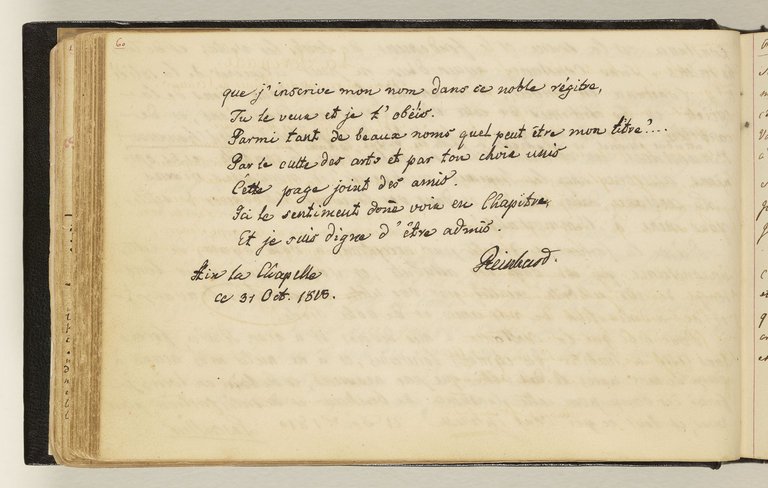 60
que j'inscrive mon nom dans ce noble régitre,
Tu le veux et je t'obéis.
Parmi tant de beaux noms quel peut être mon titre?...
Par le culte des arts et par ton choix unis
Cette page joint des amis.
Ici le sentiment done voix en Chapitre,
Et je suis digne d'être admis.
Reinhard.
Aix la Chapelle
ce 31 Oct. 1818.